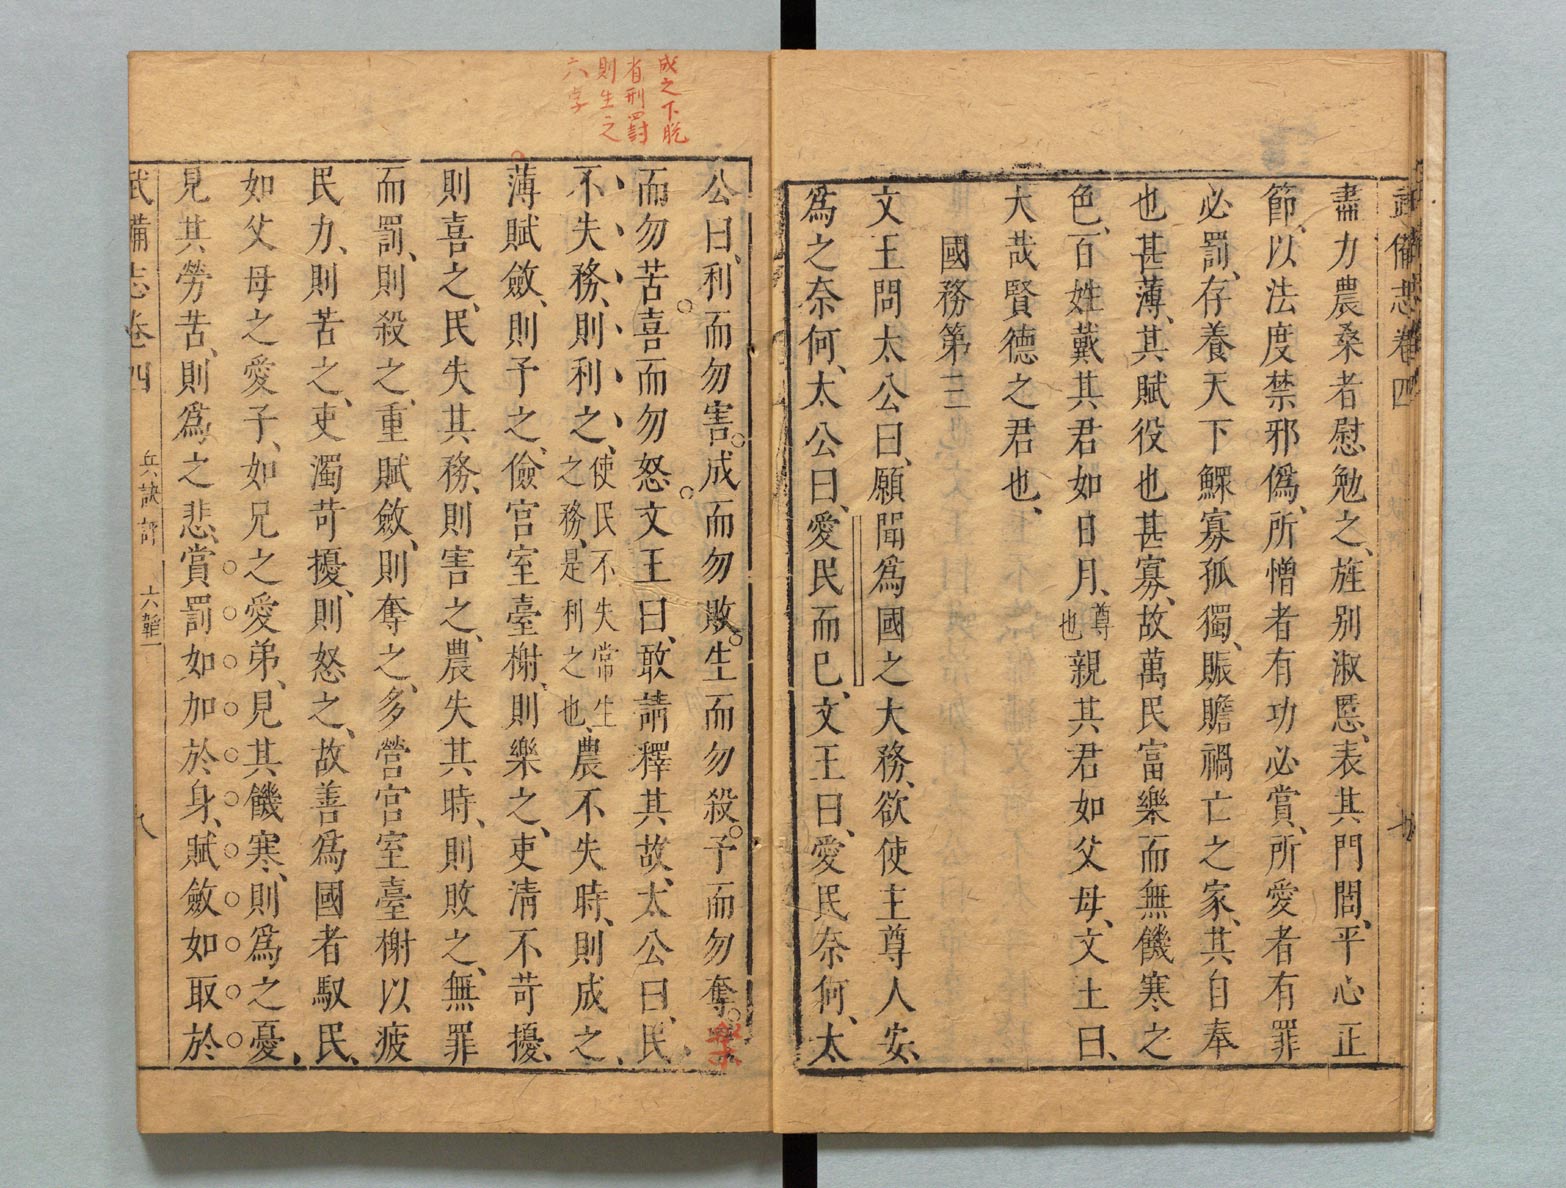 武備志卷四
盡力農桑者慰勉之、旌别淑慝、表其門閭、平心正
節、以法度禁邪僞、所憎者有功必賞、所愛者有罪
必罰、存養天下鰥寡孤獨、賑贍禍亡之家、其自奉
也甚薄、其賦役也甚寡、故萬民富樂而無饑寒之
色、百姓戴其君如日月、尊也親其君如父母、文王曰、
大哉賢德之君也、
國務第三
文王問太公曰、願聞爲國之大務、欲使主尊人安、
爲之奈何、太公曰、愛民而已、文王曰、愛民奈何、太
公曰、利而勿害。成而勿敗。生而勿殺。予而勿奪。樂
而勿苦。喜而勿怒。文王曰、敢請釋其故、太公曰、民
不失務、則利之、使民不失常生之務、是利之也、農不失時、則成之、
薄賦斂、則予之、儉宮室臺榭、則樂之、吏清不苛擾、
則喜之、民失其務、則害之、農失其時、則敗之、無罪
而罰、則殺之、重賦斂、則奪之、多營宮室臺榭以疲
民力、則苦之、吏濁苛擾、則怒之、故善爲國者馭民、
如父母之愛子、如兄之愛弟、見其饑寒、則爲之憂、
見其勞苦、則爲之悲、賞罰如加於身、賦斂如取於
武備志卷四 兵訣評 六韜一 八
成之下脫
省刑罰
則生之
六字